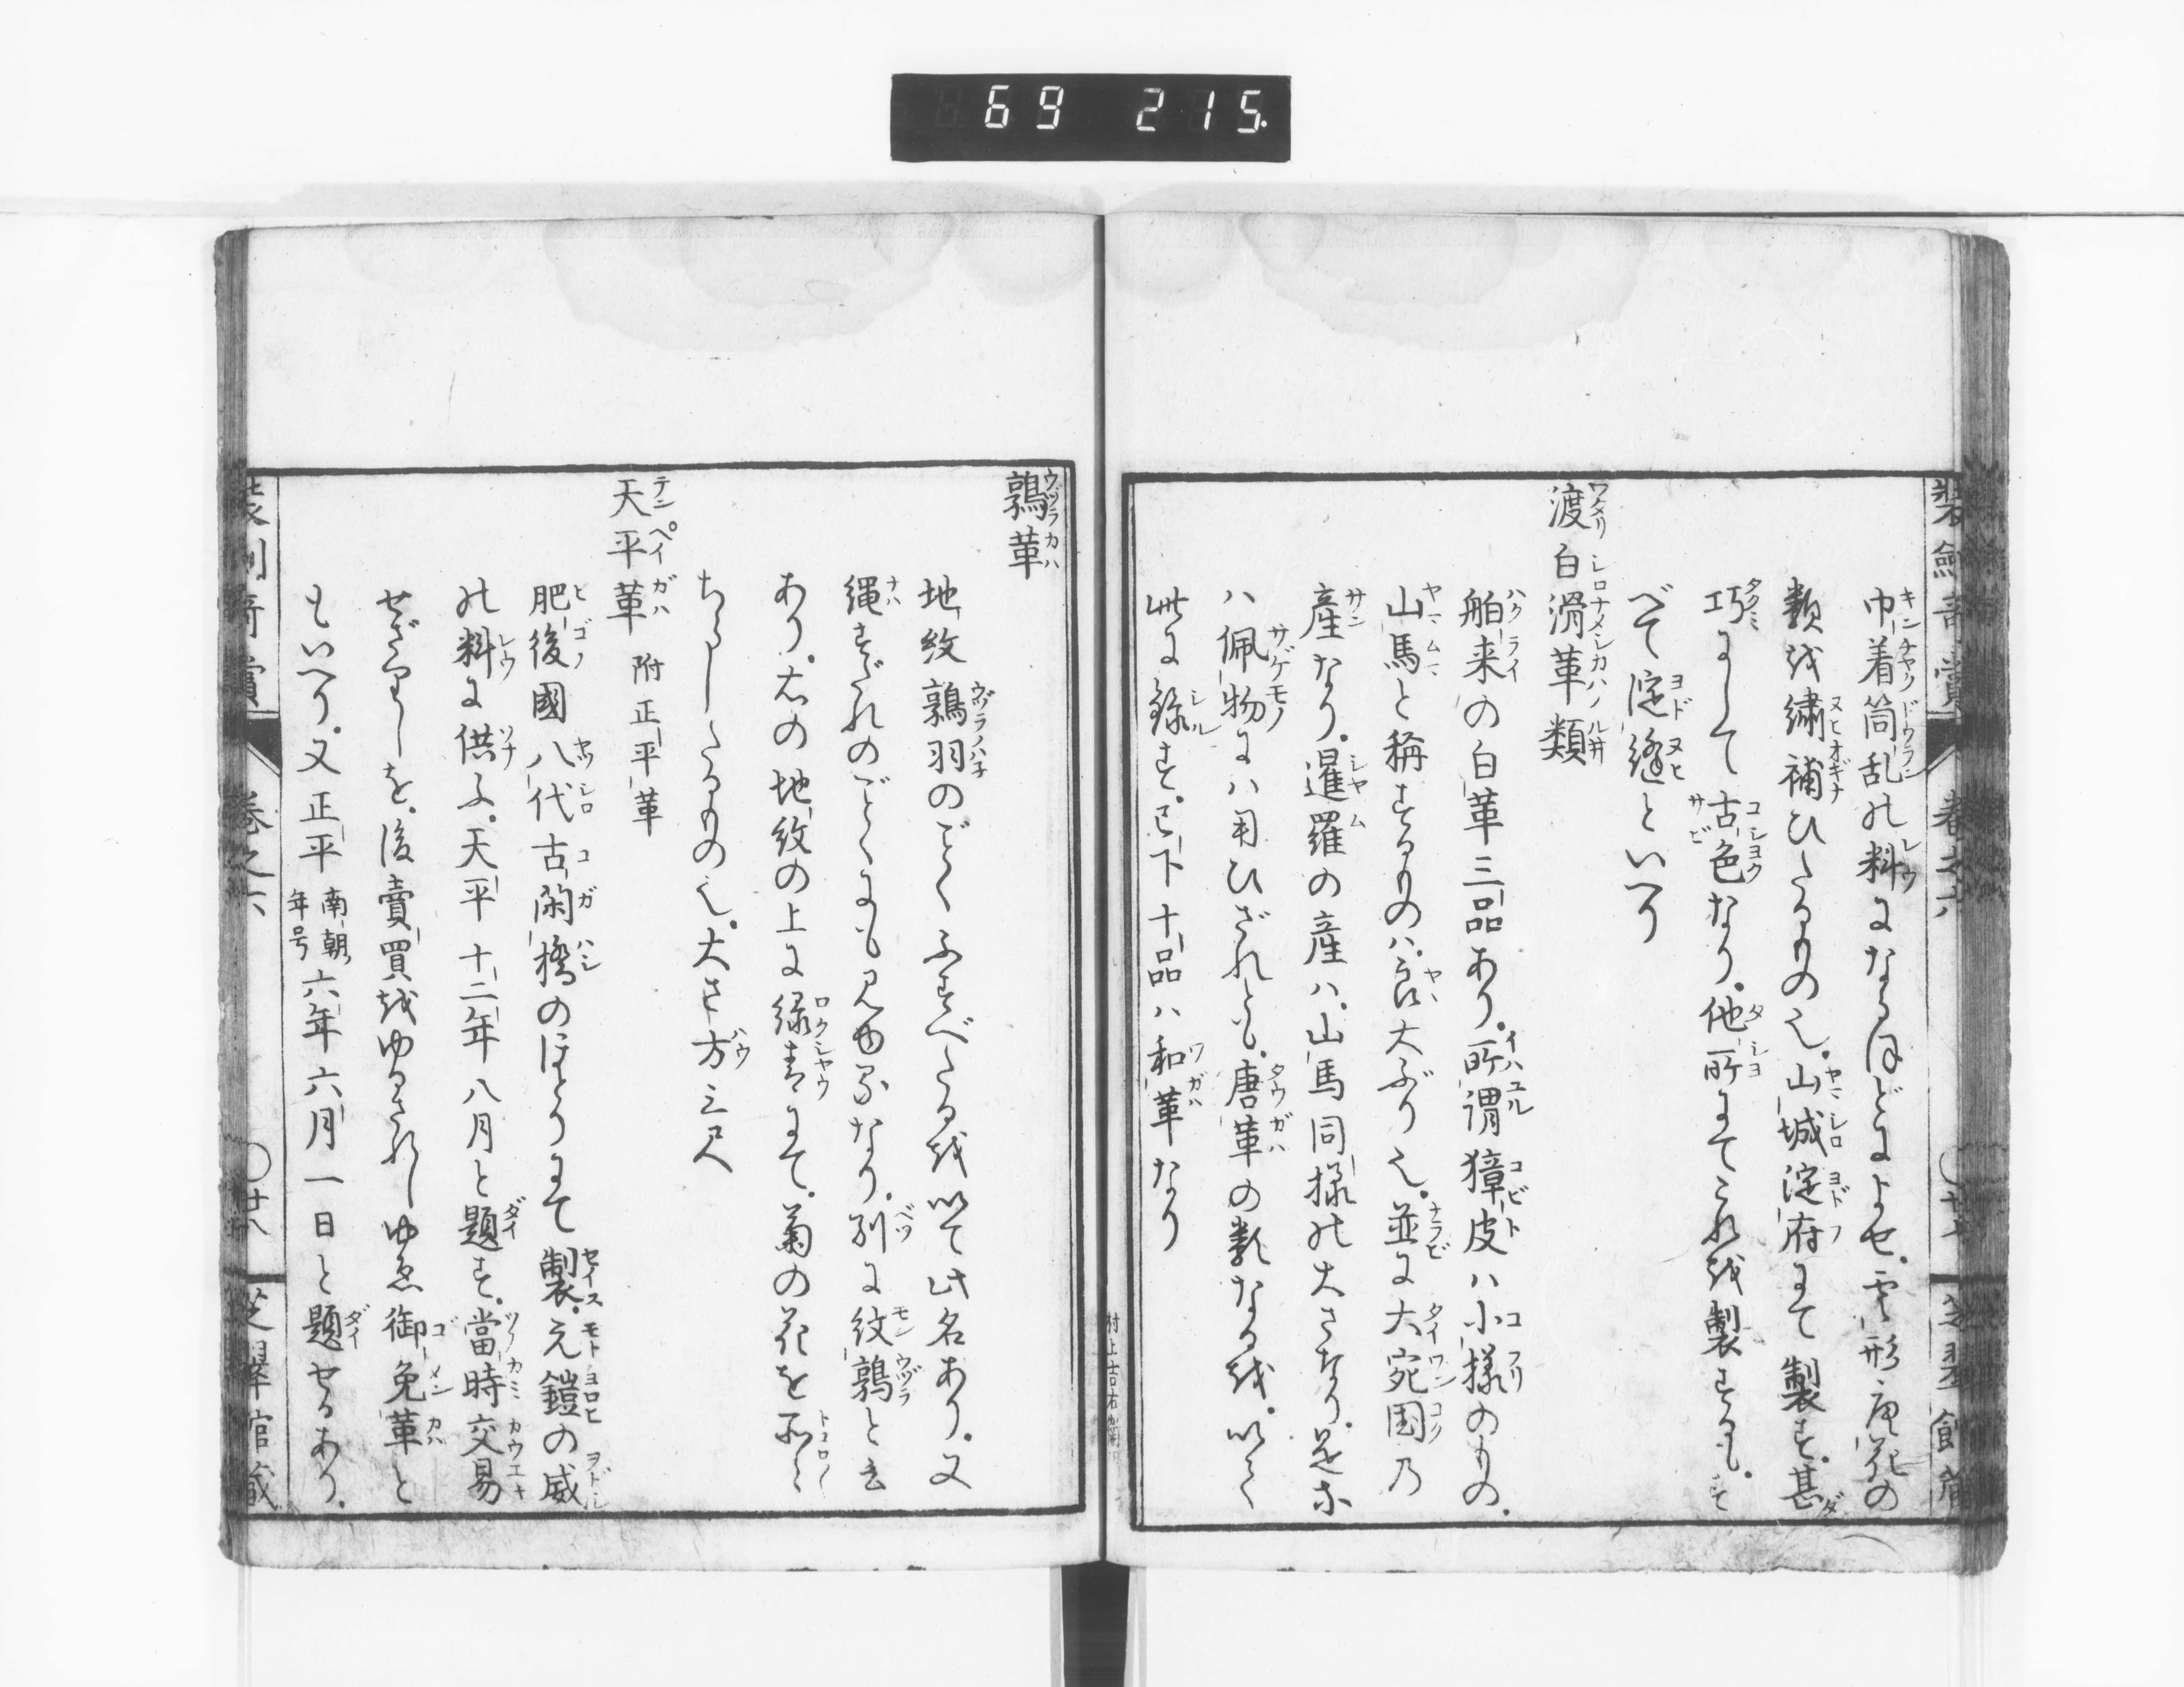 69 215.
装劔奇賞 巻之六
巾着筒乱の料になるほどによせ。雲形唐花の
類を繍補ひたるもの也。山城淀府にて製す。甚
巧にして古色なり。他所にてこれを製するも。すべ
べて淀縫といへり
渡白滑革類
舶来の白革三品あり。所謂獐皮ハ小様のもの。
山馬と称するものハ。良大ぶり也。並に大宛国乃
産なり。暹羅の産ハ。山馬同様の大さなり。是亦
ハ佩物にハ用ひざれども。唐革の数なるを。以て
此に録す。已下十品ハ和革なり
村上吉右衛門
鶉革
地紋鶉羽のごとくふすべたるを以て此名あり。又
縄すだれのごとくにも見ゆるなり。別に紋鶉と云
あり。右の地紋の上に緑青にて。菊の花を所〻
ちらしたるもの也。大さ方三尺
天平革 附正平革
肥後國八代古閑橋のほとりにて製。元鎧の威
の料に供ふ。天平十二年八月と題す。當時交易
せざりしを。後賣買をゆるされしゆゑ御免革と
もいへり。又正平南朝年号六年六月一日と題せるあり。
装劔奇賞 巻之六 〇廿八 芝翠館蔵